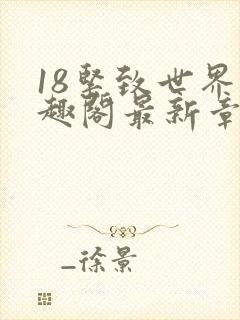 18坚致世界
趣阁最新章
_徐景